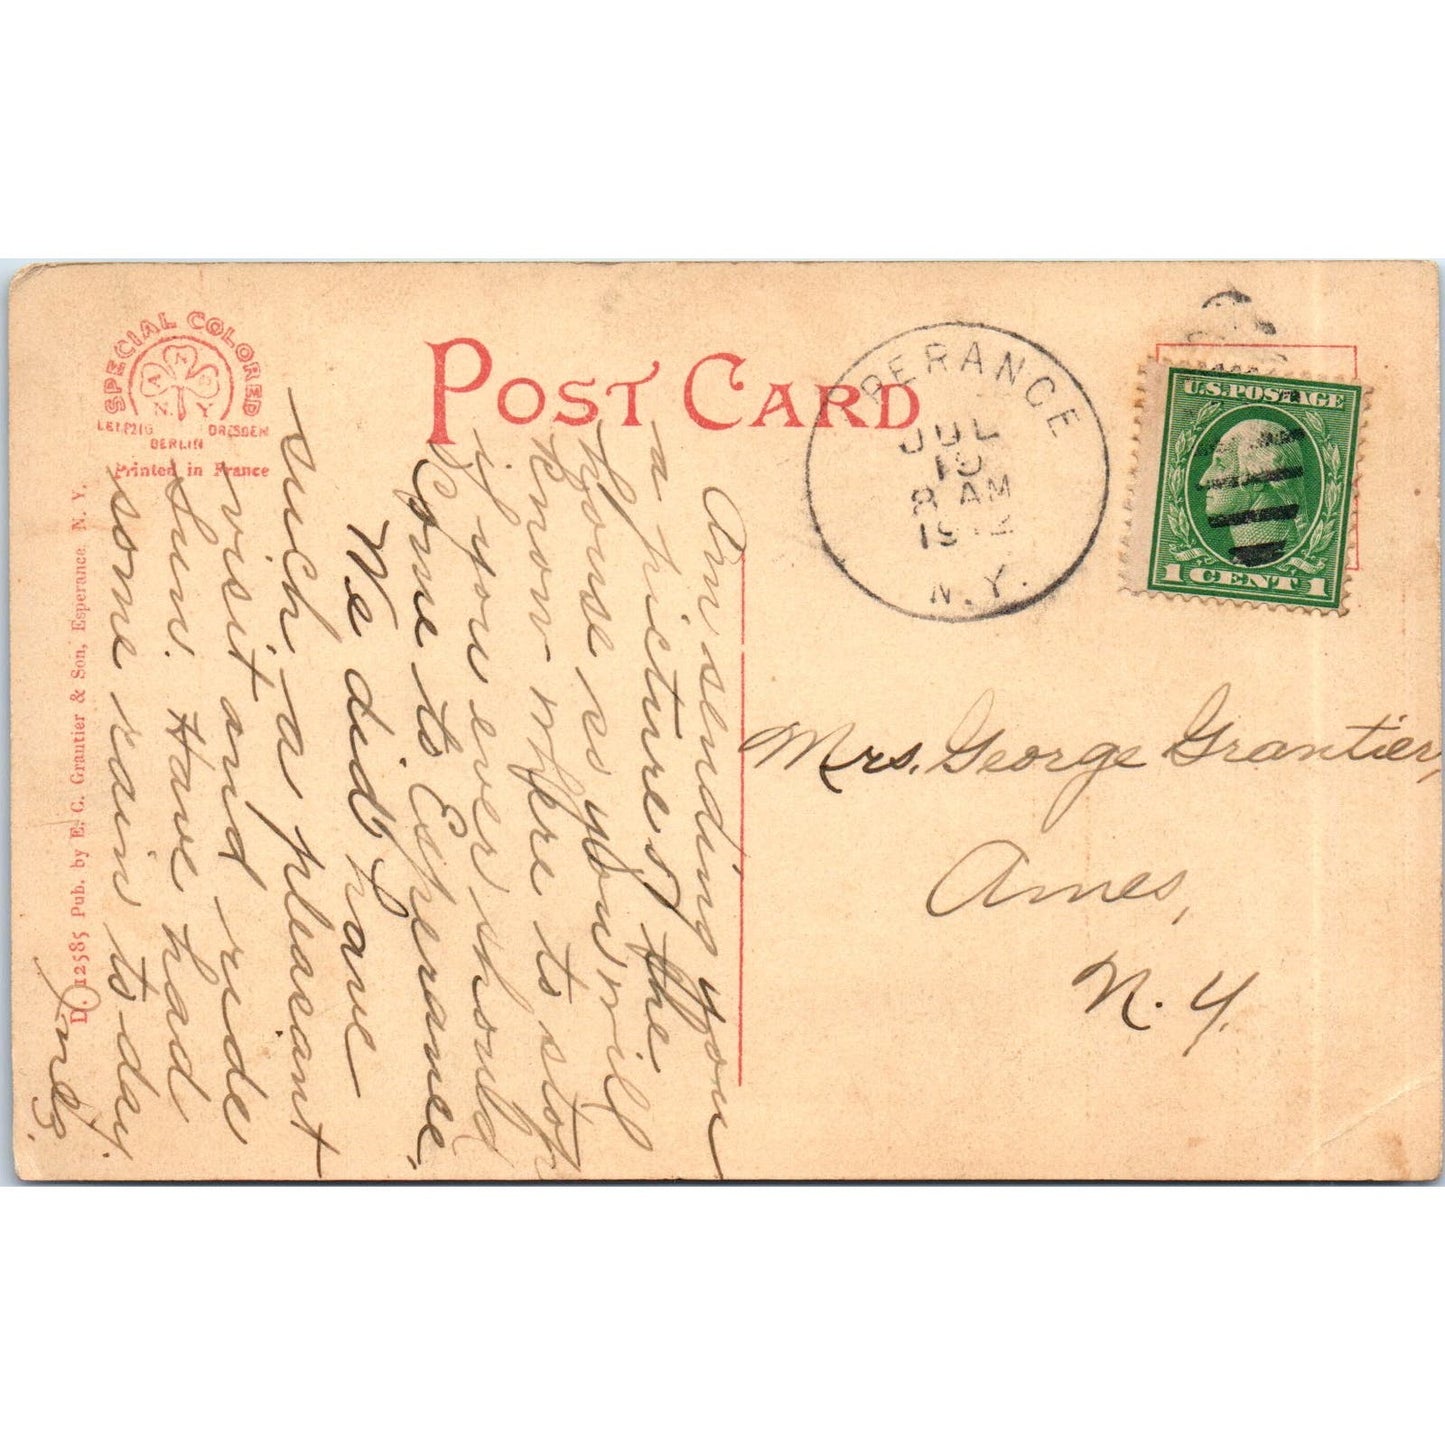 SPECIAL COLORED
A N D
N. Y.
LEIPZIG DRESDEN
BERLIN
Printed in France
POST CARD
PERANCE
JUL
19
8 AM
1912
N.Y.
U.S. POSTAGE
1 CENT 1
D. 12585 Pub. by E. G. Grantier & Son, Esperance, N. Y.
Am sending you
a picture of the
house so you will
know where to stop
if you ever should
Come to Esperance.
We did have
such a pleasant
visit and ride
Sun. Have had
some rain to-day.
Mrs. George Grantier,
Ames,
N. Y.